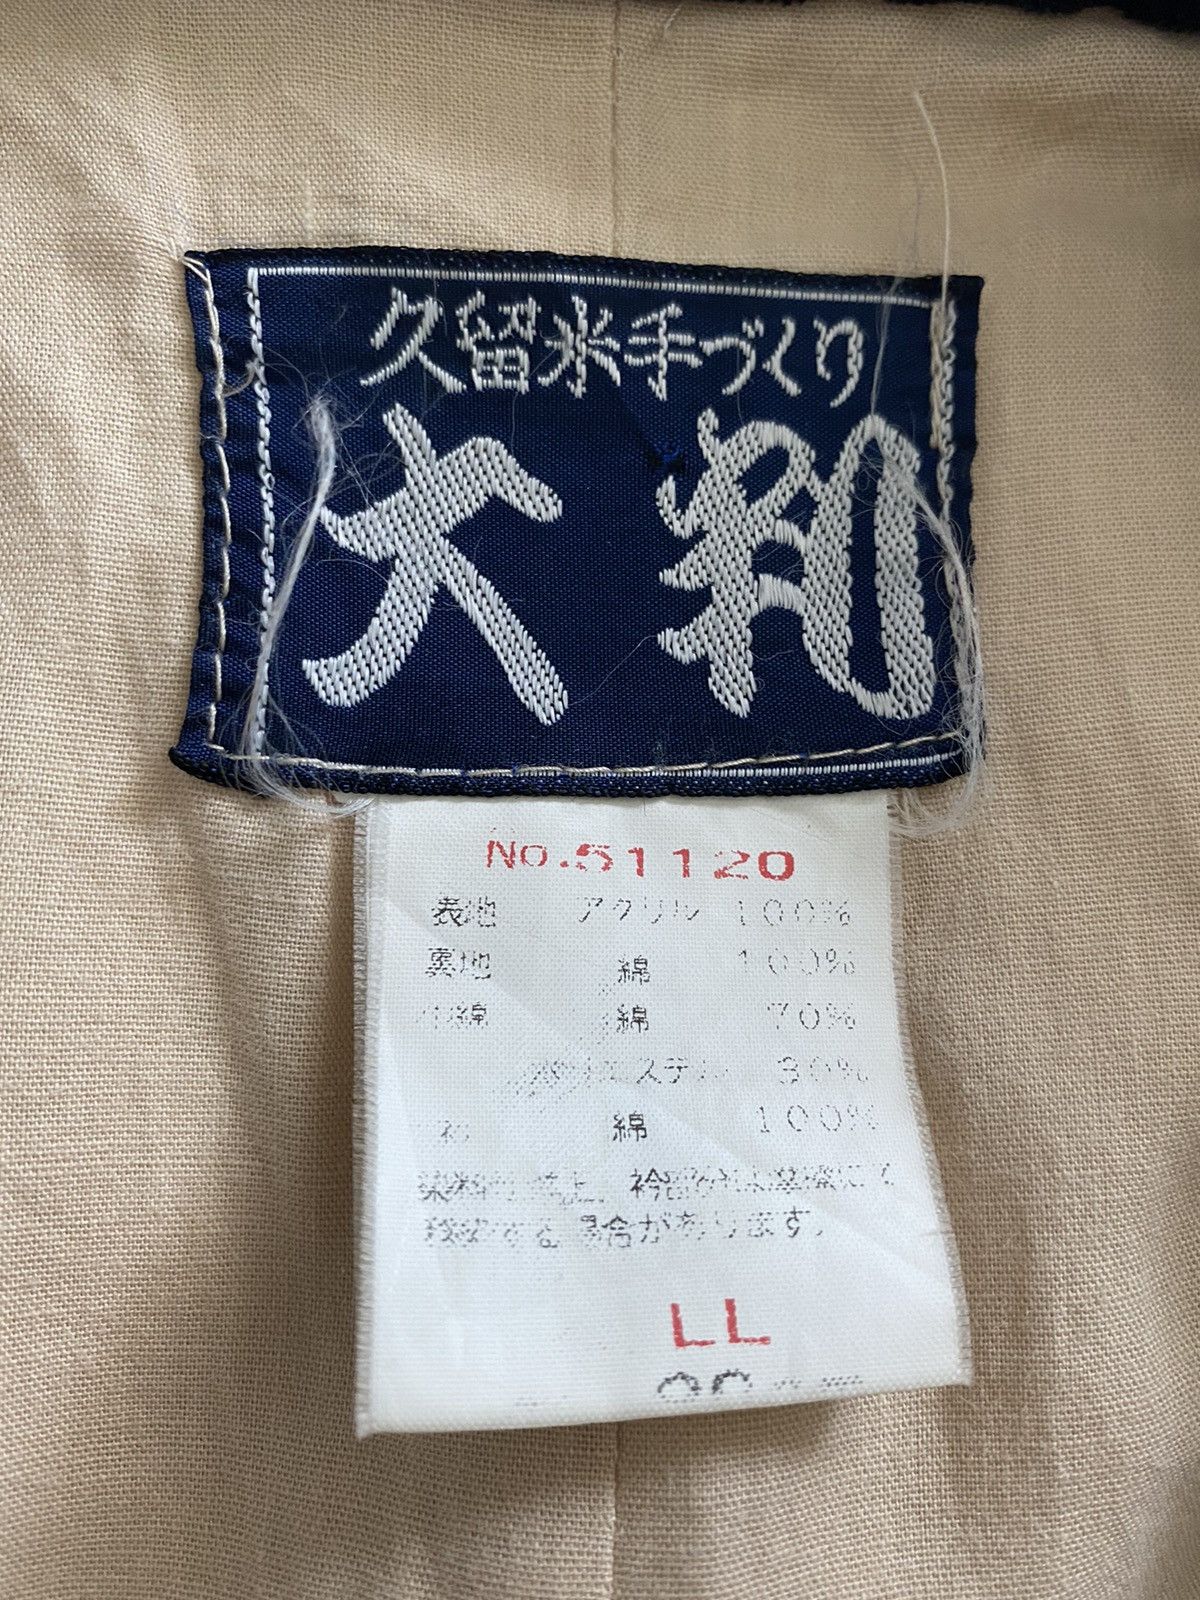 久留米手づくり
大和
No.51120
表地 アクリル 100%
裏地 綿 100%
中綿 綿 70%
ポリエステル 30%
綿 100%
染料
する場合があります。
LL